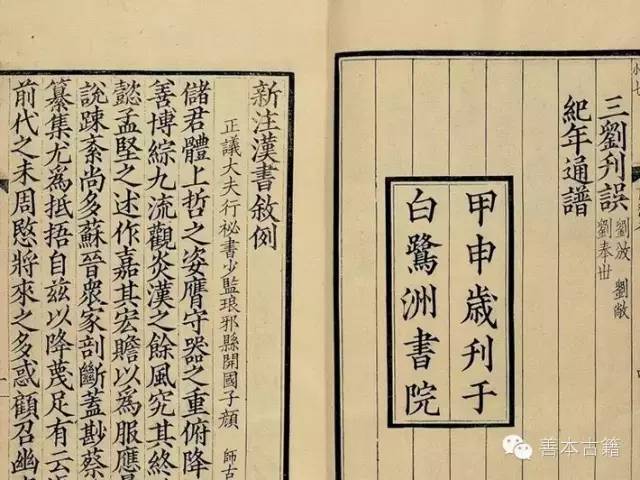 三劉刋誤 劉攽 劉敞 劉奉世
紀年通譜
甲申歲刋于
白鷺洲書院
新注漢書敘例
正議大夫行祕書少監琅邪縣開國子顔 師古
儲君體上哲之姿膺守器之重俯降
善博綜九流觀炎漢之餘風究其終
懿孟堅之述作嘉其宏贍以爲服應
說踈紊尚多蘇晉眾家剖斷蓋尠蔡
纂集尤爲抵捂自兹以降蔑足有云
前代之未周愍將來之多惑顧召幽
善本古籍